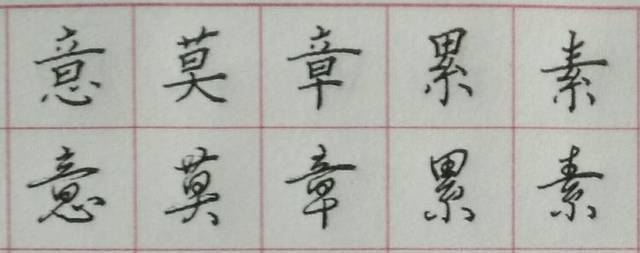 意莫章累素
意莫章累素